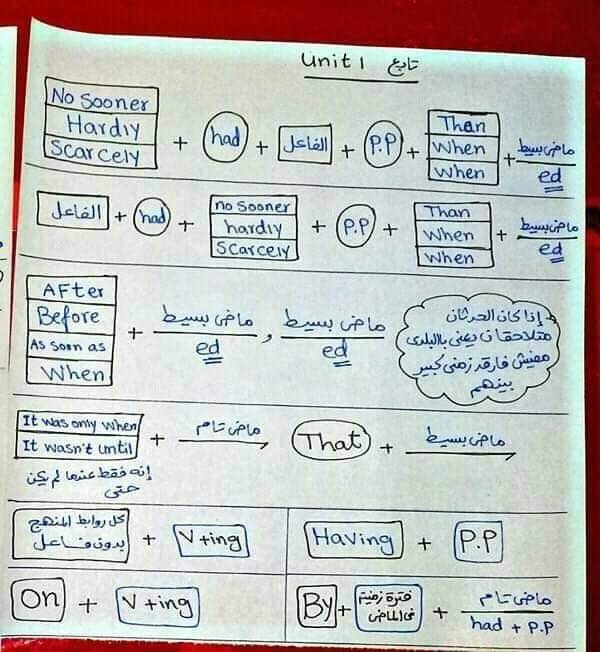 Unit 1 تابع
No Sooner
Hardly
Scarcely
+ had + الفاعل + P.P +
Than
When
When
+ ماضى بسيط
ed
الفاعل + had +
no sooner
hardly
Scarcely
+ P.P +
Than
When
When
+ ماضى بسيط
ed
After
Before
As soon as
When
+ ماضى بسيط , ماضى بسيط
ed ed
إذا كان الحدثان
متلاحقان يعنى بالبلدى
مفيش فارق زمنى كبير
بينهم
It was only when
It wasn't until
+ ماضى تام That + ماضى بسيط
إنه فقط عندما لم يكن
حتى
كل روابط المنهج
بدون فاعل
+ V+ing
Having + P.P
On + V+ing
By + فترة زمنية
فى الماضى
+ ماضى تام
had + P.P